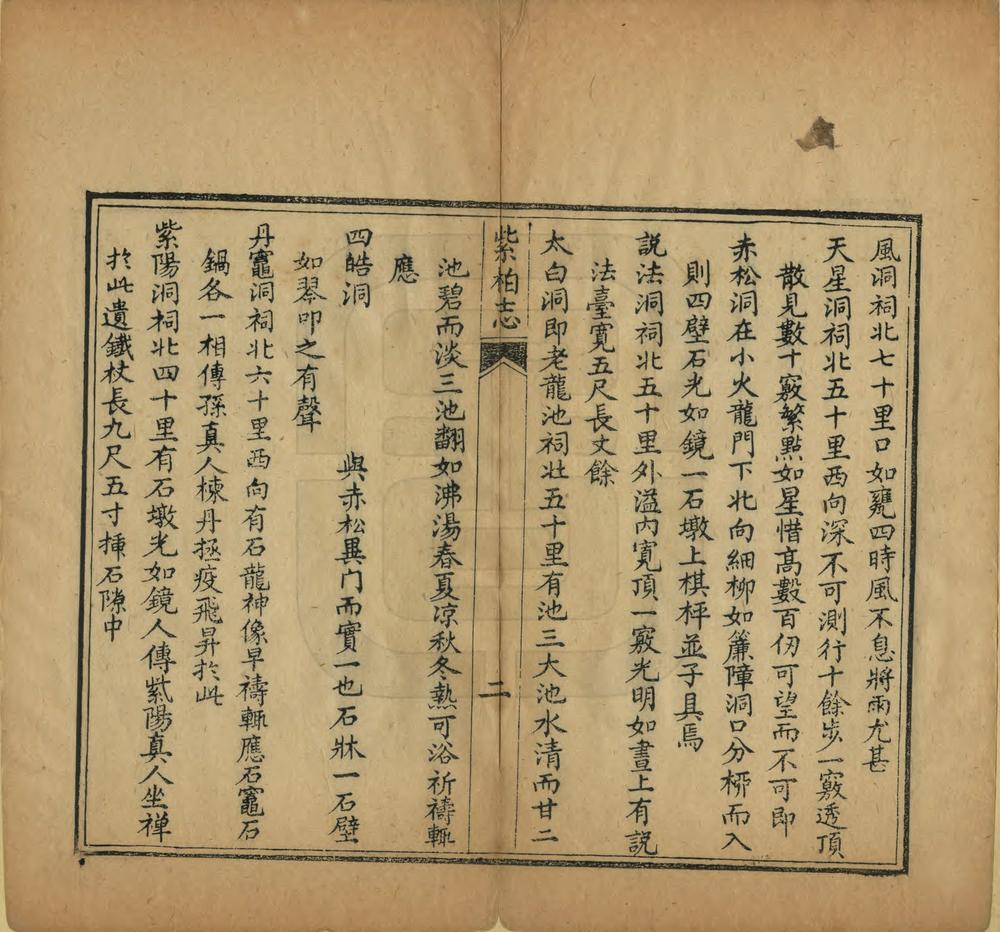 風洞祠北七十里口如甕四時風不息將雨尤甚
天星洞祠北五十里西向深不可測行十餘步一竅透頂
散見數十竅繁點如星惜高數百仞可望而不可即
赤松洞在小火龍門下北向細柳如簾障洞口分栁而入
則四壁石光如鏡一石墩上棋枰並子具焉
説法洞祠北五十里外溢內寬頂一竅光明如晝上有説
法臺寛五尺長丈餘
太白洞即老龍池祠北五十里有池三大池水清而甘二
紫柏志
二
池碧而淡三池翻如沸湯春夏凉秋冬熱可浴祈禱輙
應
四皓洞 與赤松異門而實一也石牀一石壁
如琴叩之有聲
丹竈洞祠北六十里西向有石龍神像旱禱輙應石竈石
鍋各一相傳孫真人楝丹拯疫飛昇於此
紫陽洞祠北四十里有石墩光如鏡人傳紫陽真人坐禅
於此遺鐵杖長九尺五寸揷石隙中